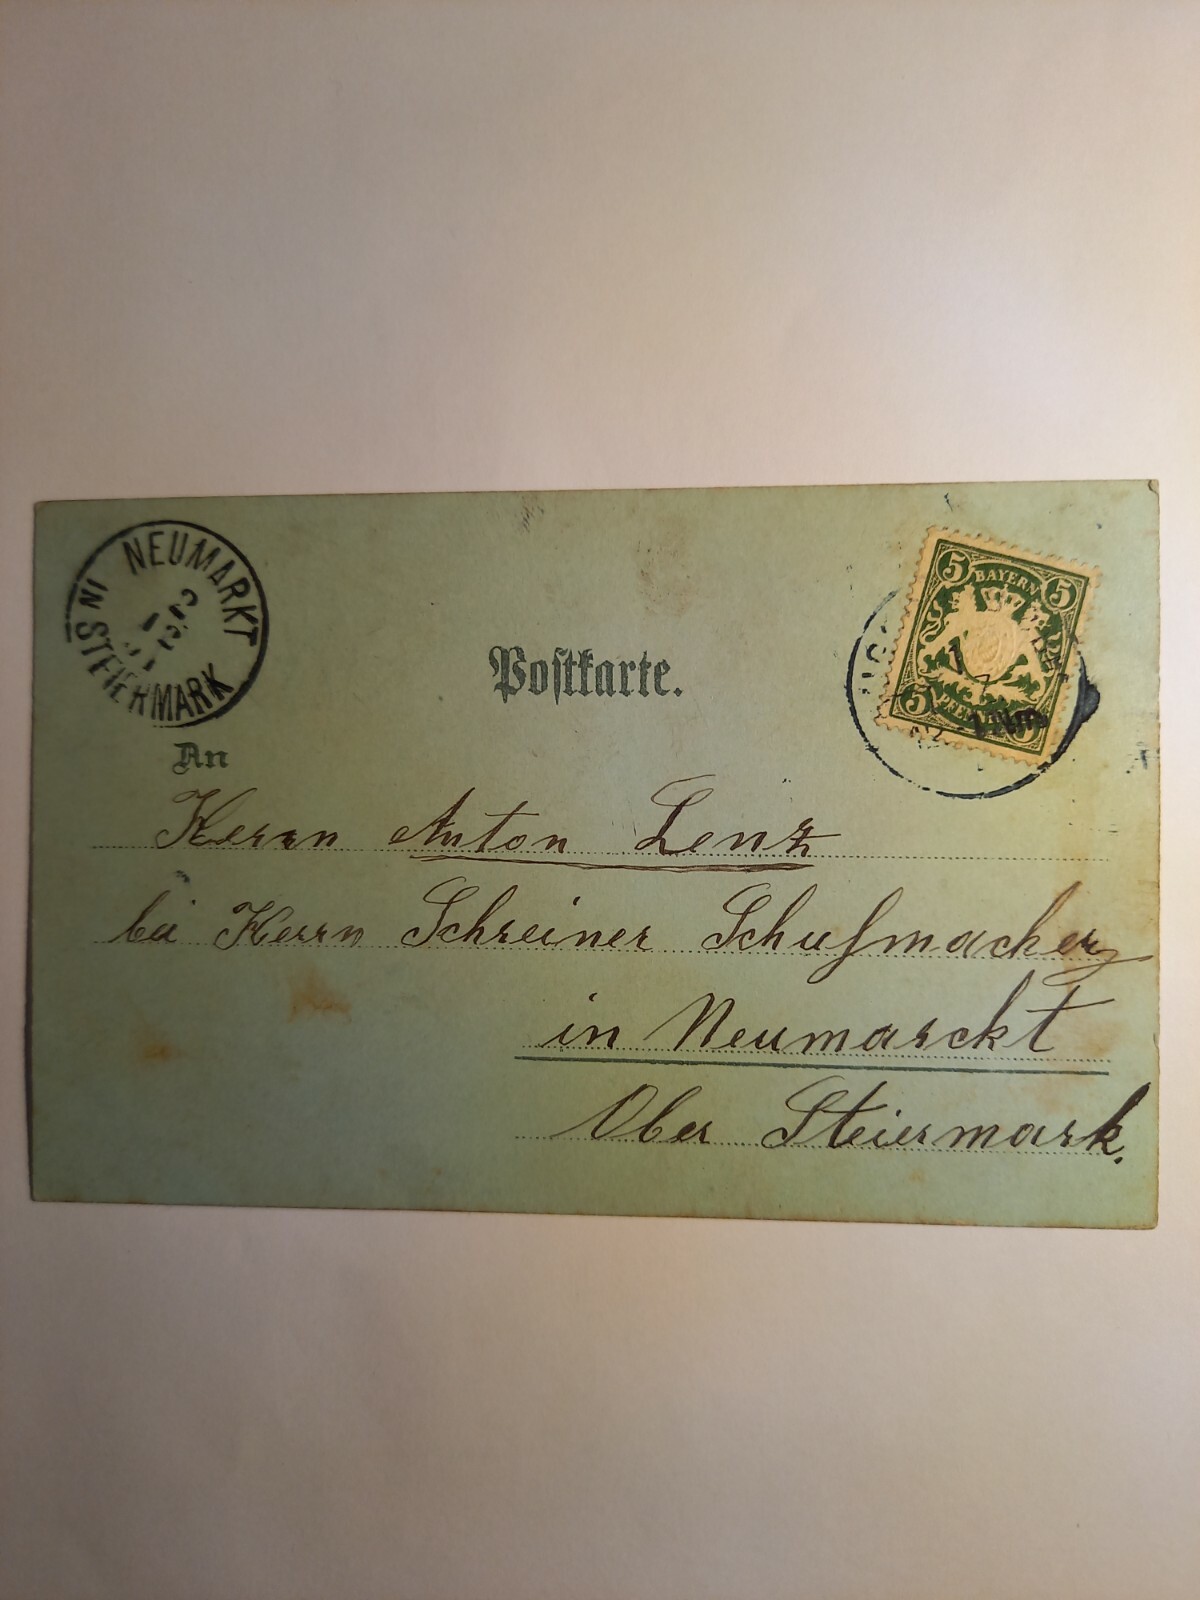 NEUMARKT
IN STEIERMARK
Postkarte.
5 BAYERN 5
5 PFENNIG
An
Herrn Anton Lenz
bei Herrn Schreiner Schuhmacher
in Neumarckt
Ober Steiermark.